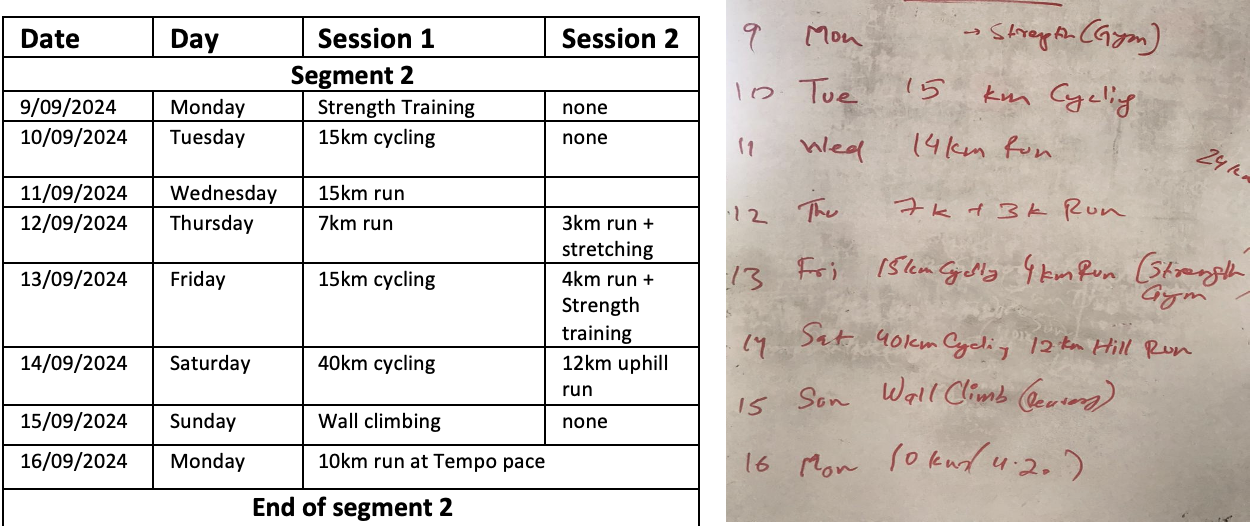 Date Day Session 1 Session 2
Segment 2
9/09/2024 Monday Strength Training none
10/09/2024 Tuesday 15km cycling none
11/09/2024 Wednesday 15km run
12/09/2024 Thursday 7km run 3km run +
stretching
13/09/2024 Friday 15km cycling 4km run +
Strength
training
14/09/2024 Saturday 40km cycling 12km uphill
run
15/09/2024 Sunday Wall climbing none
16/09/2024 Monday 10km run at Tempo pace
End of segment 2
9 Mon → Strength (Gym)
10 Tue 15 km Cycling
11 Wed 14km Run
24 km
12 Thu 7k + 3k Run
13 Fri 15km Cyclig 4km Run (Strength
Gym)
14 Sat 40km Cyclig 12km Hill Run
15 Sun Wall Climb
16 Mon 10 km (4:20)